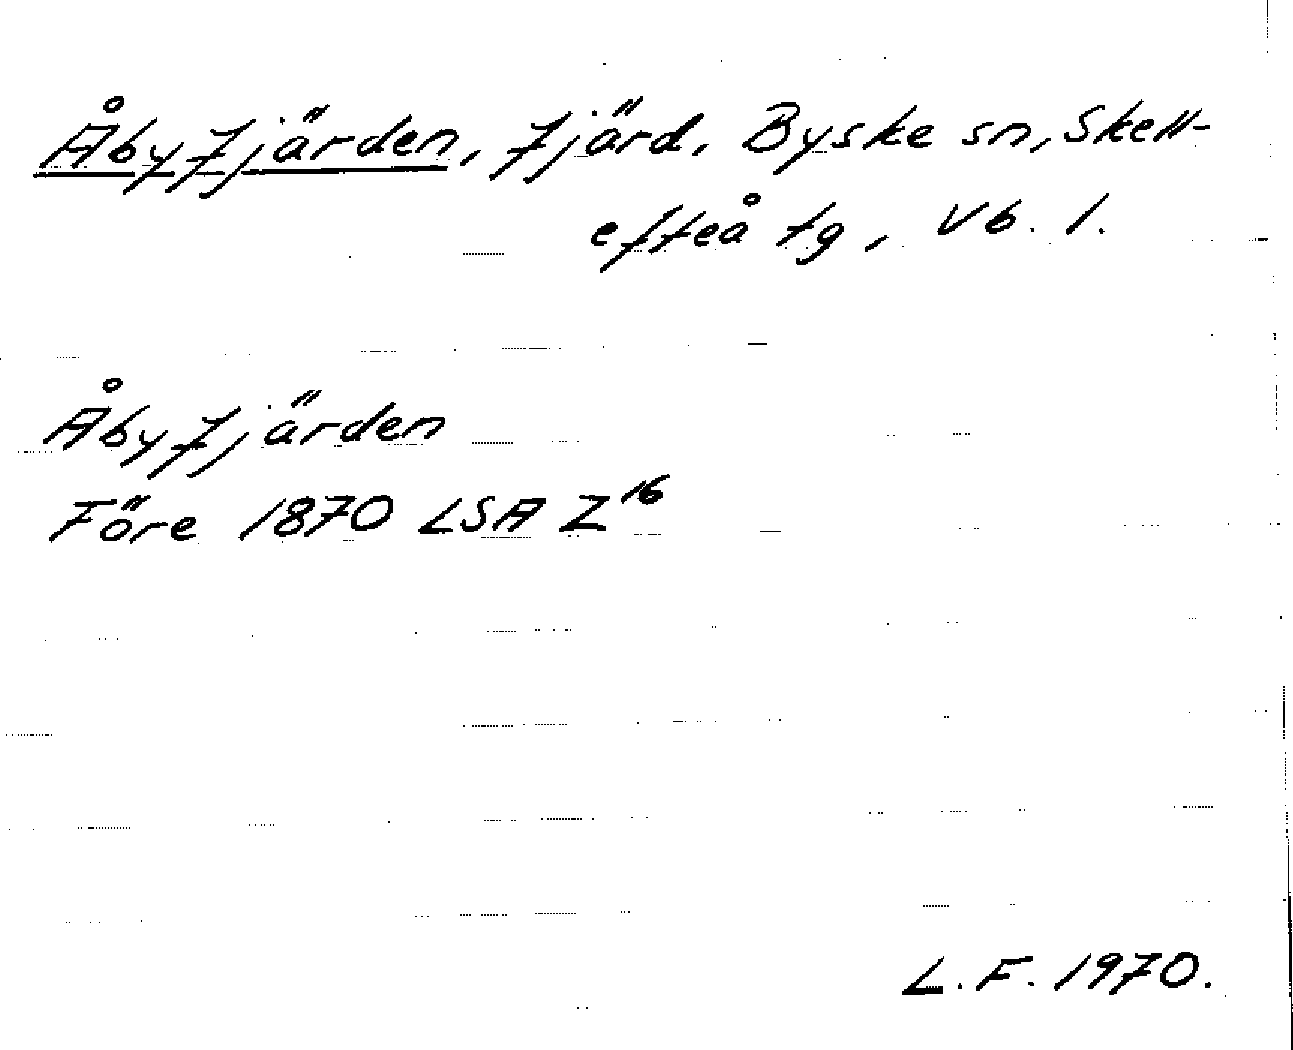 Åbyfjärden, fjärd, Byske sn, Skell-
efteå tg, Vb. l.
Åbyfjärden
Före 1870 LSA Z16
L.F. 1970.